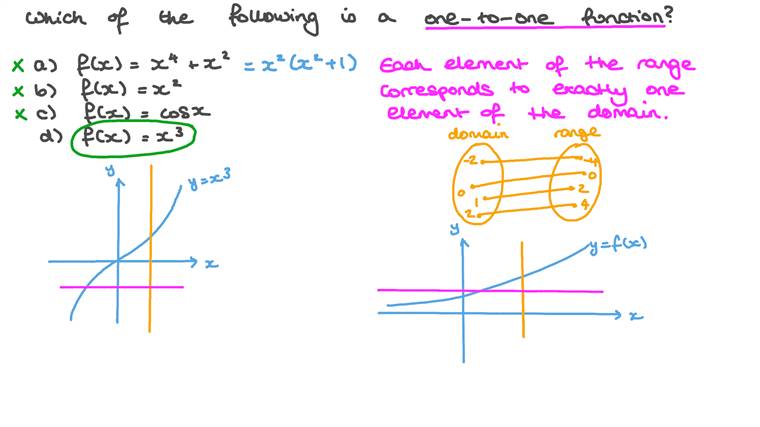 Which of the following is a one-to-one function?
x a) f(x) = x⁴ + x² = x²(x²+1)
x b) f(x) = x²
x c) f(x) = cosx
d) f(x) = x³
Each element of the range
corresponds to exactly one
element of the domain.
domain range
-2 -4
0 0
1 2
2 4
y
y=x³
x
y
y=f(x)
x